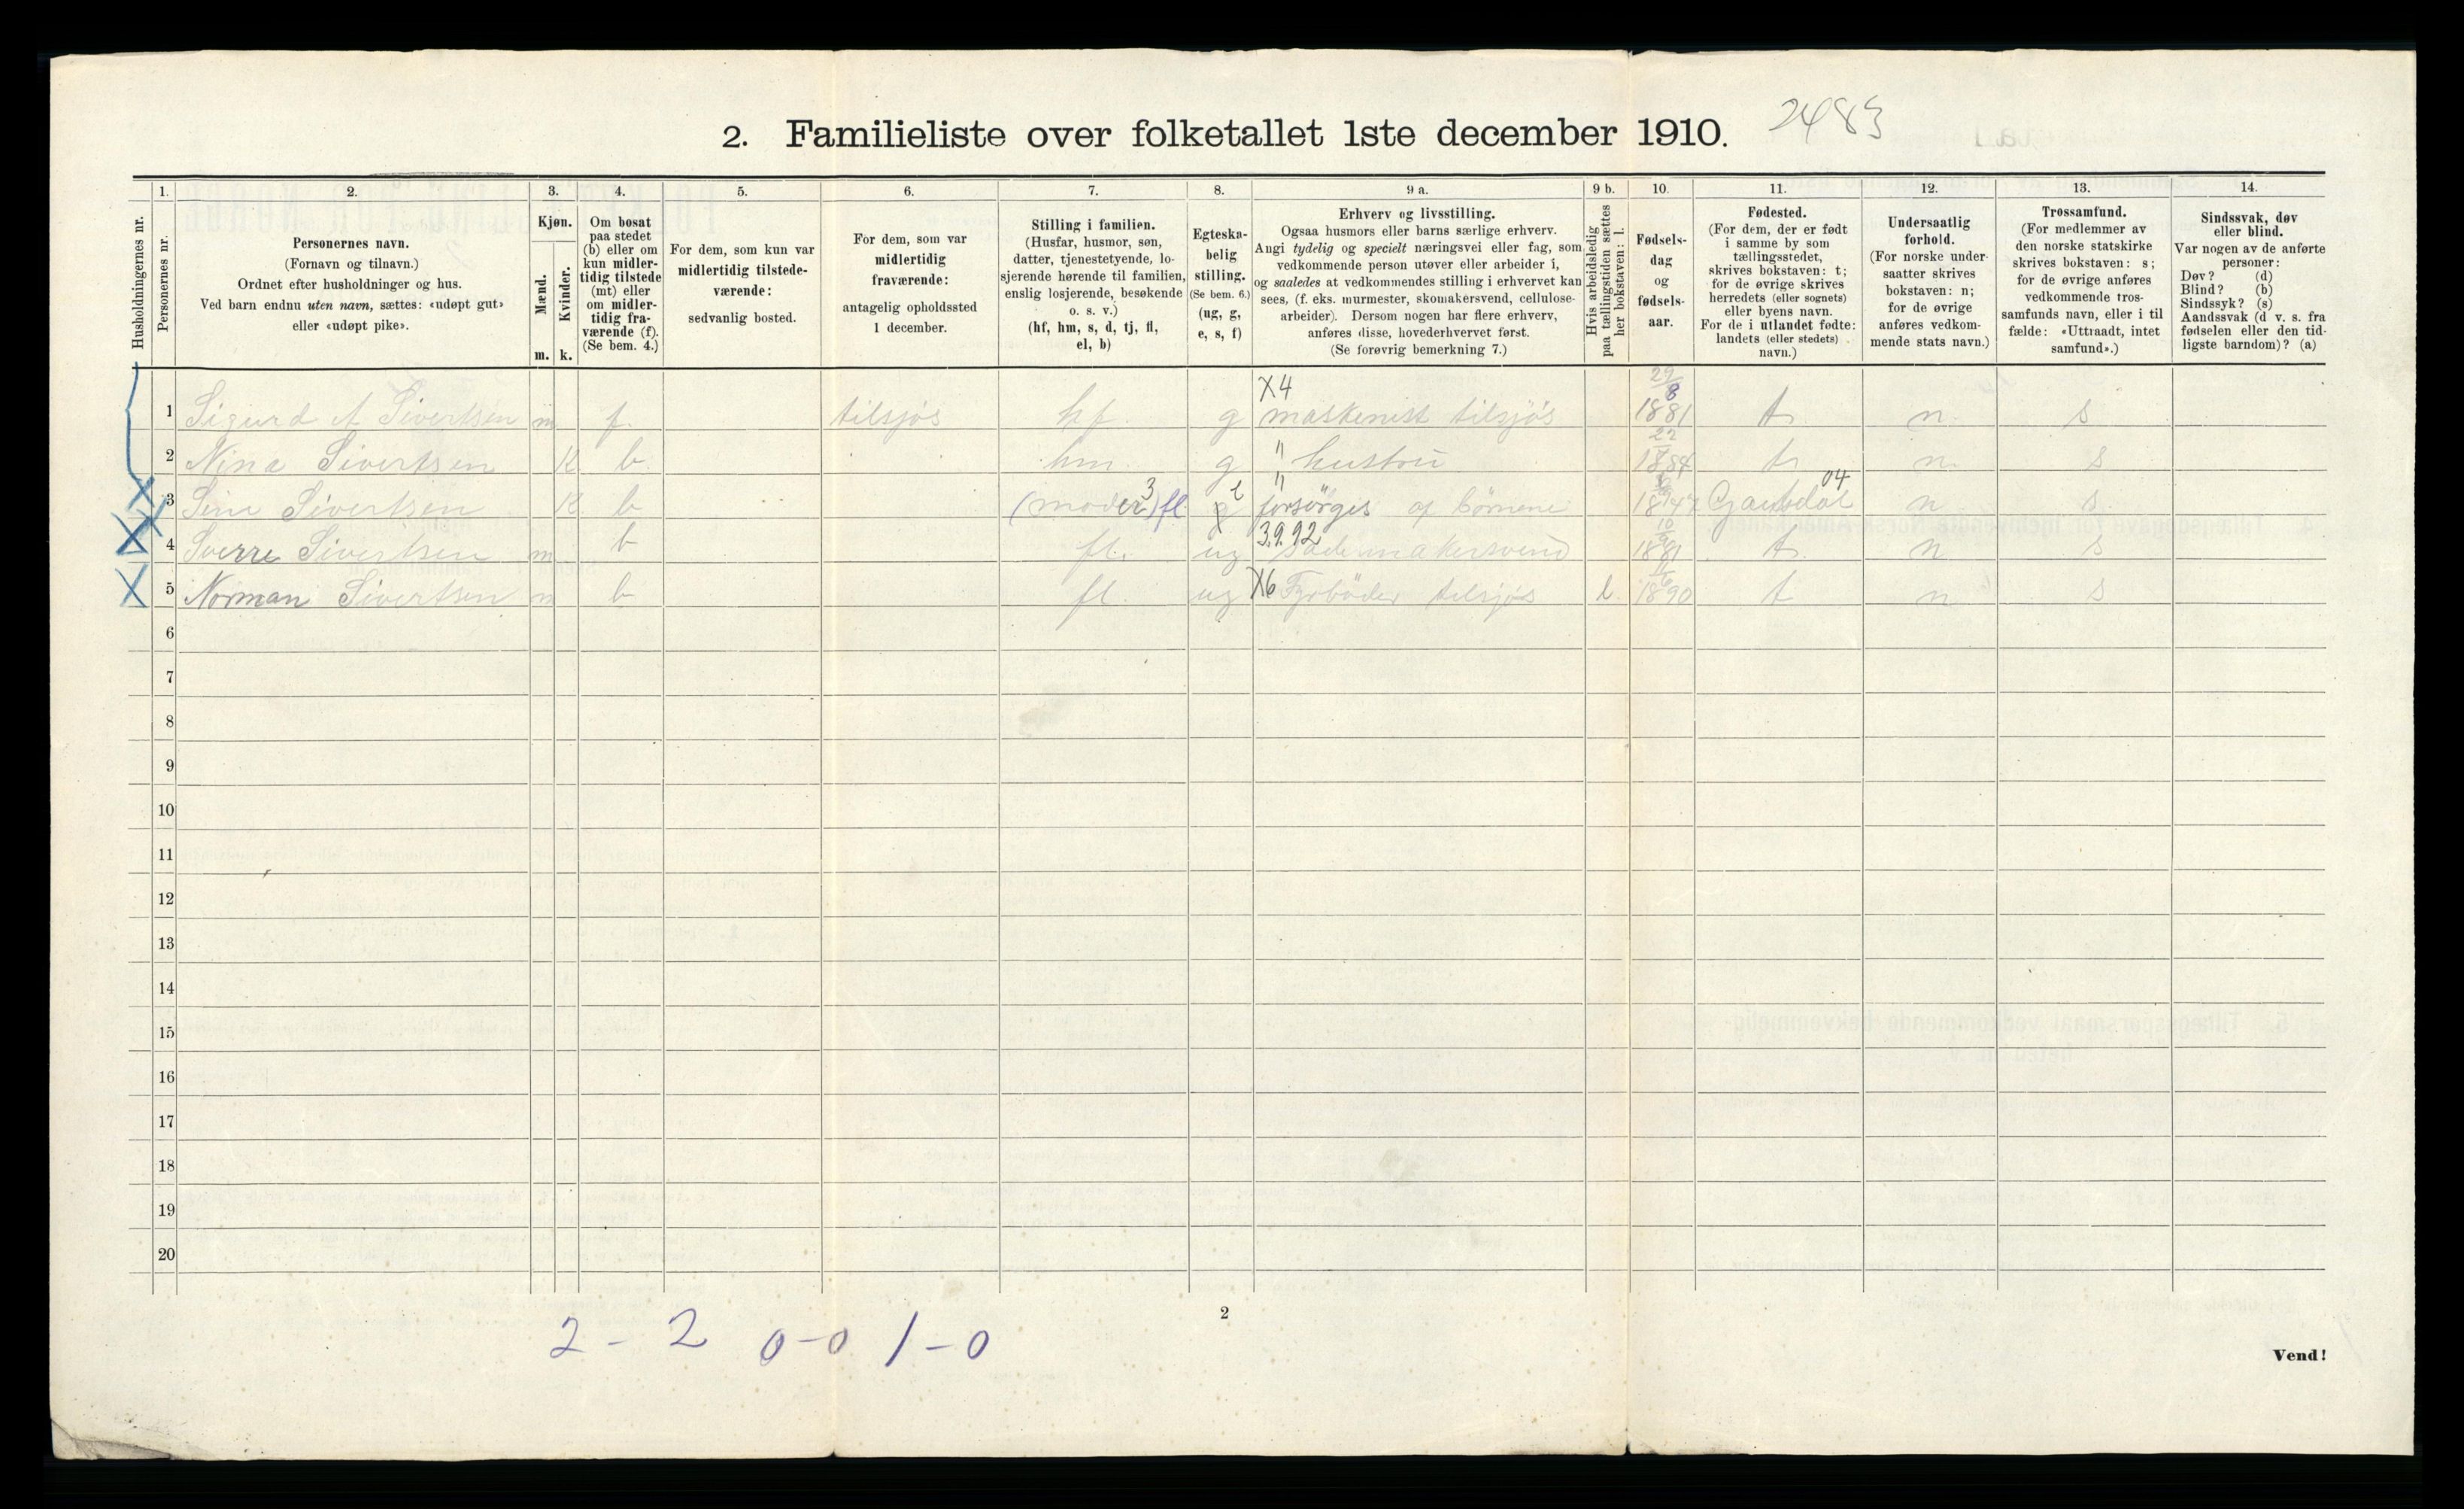 2. Familieliste over folketallet 1ste december 1910. 2483
1. 2. 3. 4. 5. 6. 7. 8. 9 a. 9 b. 10. 11. 12. 13. 14.
Husholdningernes nr.
Personernes nr.
Personernes navn.
(Fornavn og tilnavn.)
Ordnet efter husholdninger og hus.
Ved barn endnu uten navn, sættes: «udøpt gut»
eller «udøpt pike».
Kjøn.
Mænd.
m.
Kvinder.
k.
Om bosat
paa stedet
(b) eller om
kun midler-
tidig tilstede
(mt) eller
om midler-
tidig fra-
værende (f).
(Se bem. 4.)
For dem, som kun var
midlertidig tilstede-
værende:
sedvanlig bosted.
For dem, som var
midlertidig
fraværende:
antagelig opholdssted
1 december.
Stilling i familien.
(Husfar, husmor, søn,
datter, tjenestetyende, lo-
sjerende hørende til familien,
enslig losjerende, besøkende
o. s. v.)
(hf, hm, s, d, tj, fl,
el, b)
Egteska-
belig
stilling.
(Se bem. 6.)
(ug, g,
e, s, f)
Erhverv og livsstilling.
Ogsaa husmors eller barns særlige erhverv.
Angi tydelig og specielt næringsvei eller fag, som
vedkommende person utøver eller arbeider i,
og saaledes at vedkommendes stilling i erhvervet kan
sees, (f. eks. murmester, skomakersvend, cellulose-
arbeider). Dersom nogen har flere erhverv,
anføres disse, hovederhvervet først.
(Se forøvrig bemerkning 7.)
Hvis arbeidsledig
paa tællingstiden sættes
her bokstaven: l.
Fødsels-
dag
og
fødsels-
aar.
Fødested.
(For dem, der er født
i samme by som
tællingsstedet,
skrives bokstaven: t;
for de øvrige skrives
herredets (eller sognets)
eller byens navn.
For de i utlandet fødte:
landets (eller stedets)
navn.)
Undersaatlig
forhold.
(For norske under-
saatter skrives
bokstaven: n;
for de øvrige
anføres vedkom-
mende stats navn.)
Trossamfund.
(For medlemmer av
den norske statskirke
skrives bokstaven: s;
for de øvrige anføres
vedkommende tros-
samfunds navn, eller i til
fælde: «Uttraadt, intet
samfund».)
Sindssvak, døv
eller blind.
Var nogen av de anførte
personer:
Døv? (d)
Blind? (b)
Sindssyk? (s)
Aandssvak (d v. s. fra
fødselen eller den tid-
ligste barndom)? (a)
X4 29/8
1 Sigurd A Sivertsen m f. tilsjøs hf. g maskenist tilsjøs 1881 t n. s
2 Nina Sivertsen K b. hm. g " hustru 1884 t n. s
3 " 04
3 Sivertsen K b (moder) fl e forsørges af börnene Gausdal n s.
3.9.92
4 Sverre Sivertsen m b fl. ug 1881 t. n s
5 Norman Sivertsen m b fl. ug X6 Fyrböder tilsjøs l. 1890 t n s
6
7
8
9
10
11
12
13
14
15
16
17
18
19
20
2
2 - 2 0 - 0 1 - 0
Vend!